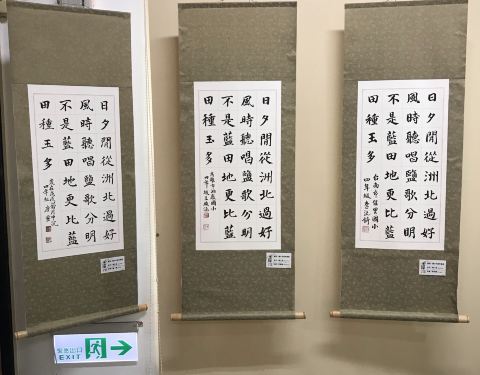 日夕閒從洲北過好
風時聽唱鹽歌分明
不是藍田地更比藍
田種玉多
日夕閒從洲北過好
風時聽唱鹽歌分明
不是藍田地更比藍
田種玉多
國小
日夕閒從洲北過好
風時聽唱鹽歌分明
不是藍田地更比藍
田種玉多
台南市 國小
四年級
緊急出口
EXIT